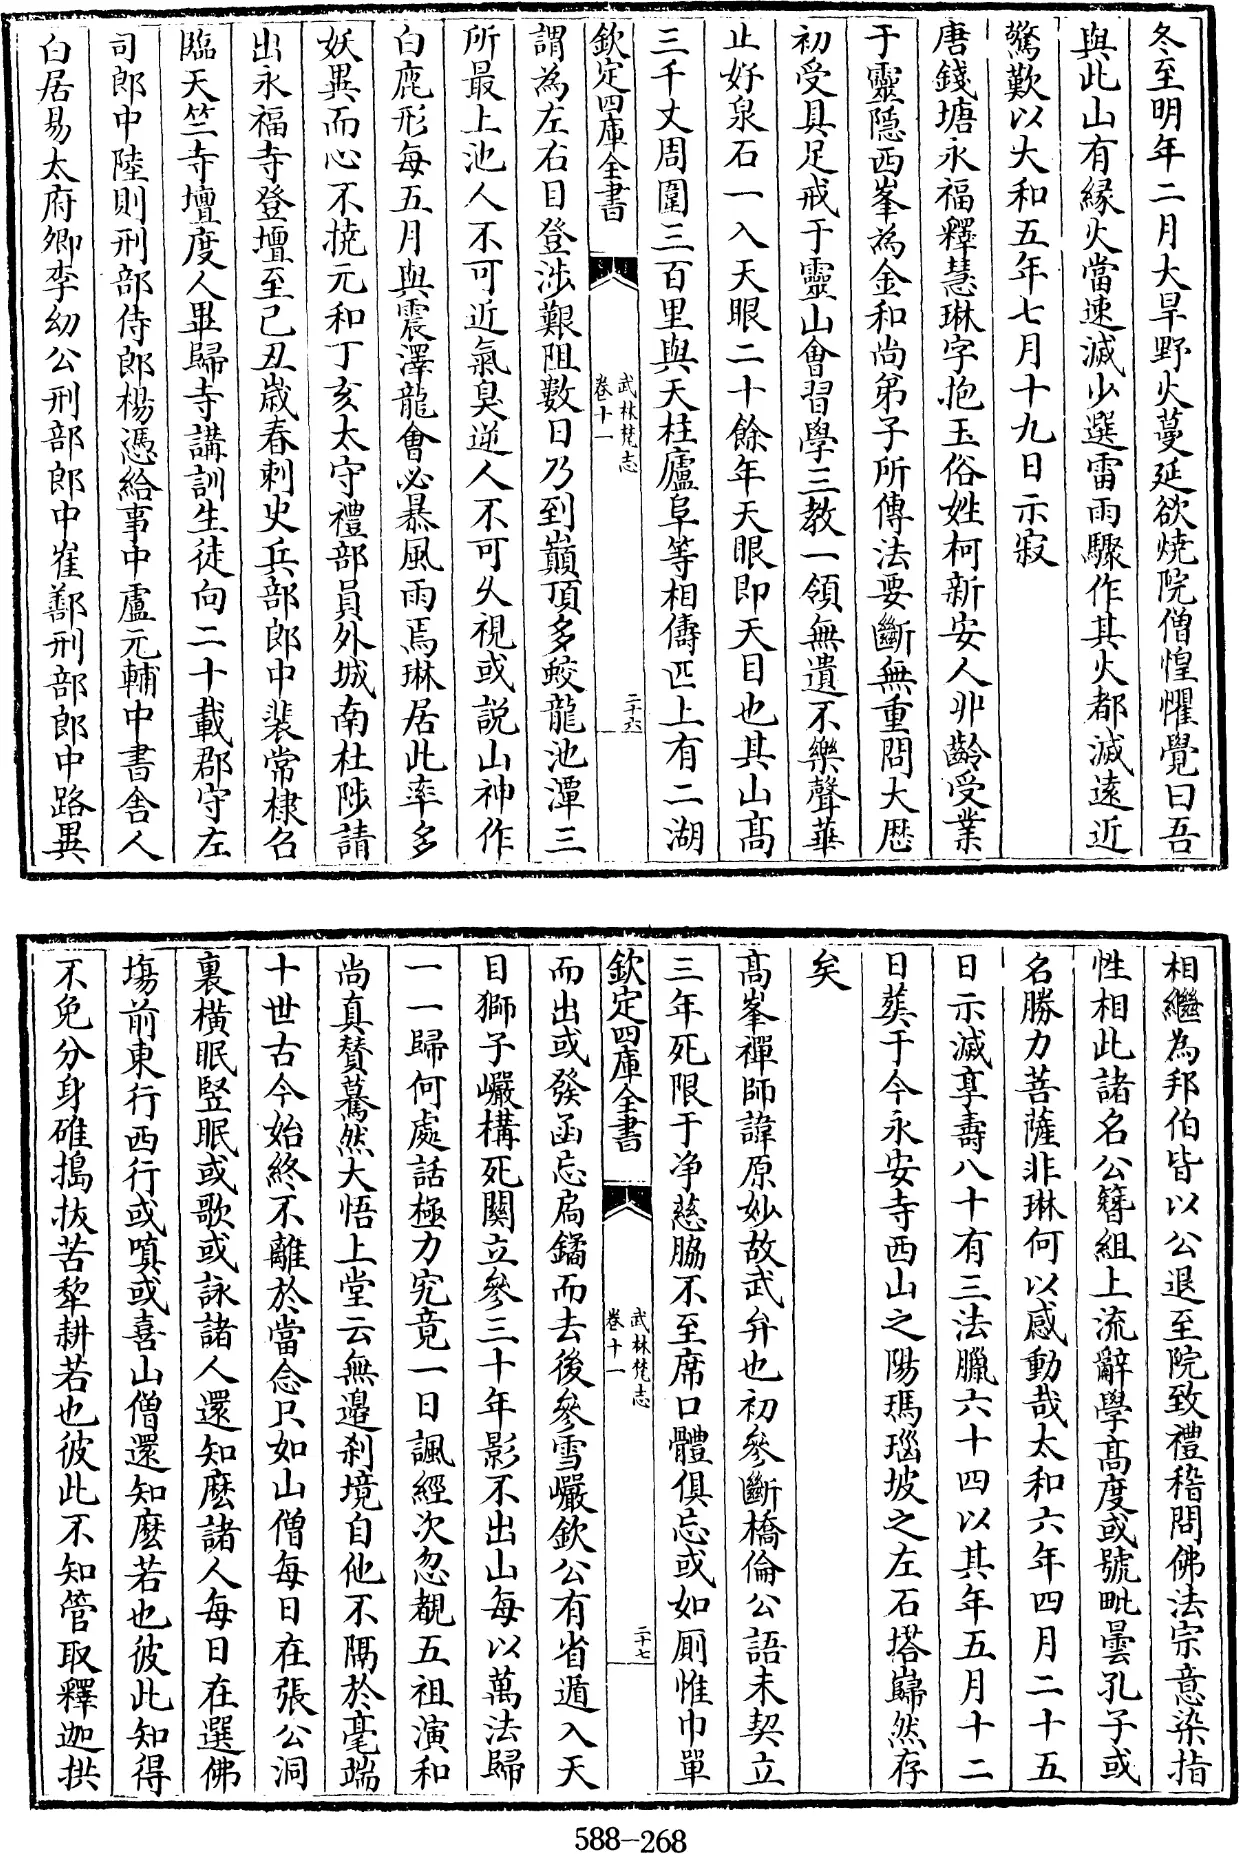 冬至明年二月大旱野火蔓延欲燒院僧惶懼覺曰吾
與此山有緣火當速滅少選雷雨驟作其火都滅遠近
驚歎以大和五年七月十九日示寂
唐錢塘永福釋慧琳字抱玉俗姓柯新安人丱齡受業
于靈隱西峯為金和尚弟子所傳法要斷無重問大厯
初受具足戒于靈山會習學三教一領無遺不樂聲華
止好泉石一入天眼二十餘年天眼即天目也其山高
三千丈周圍三百里與天柱廬阜等相儔匹上有二湖
欽定四庫全書
武林梵志
卷十一
二十六
謂為左右目登涉艱阻數日乃到巔頂多蛟龍池潭三
所最上池人不可近氣臭逆人不可久視或説山神作
白鹿形每五月與震澤龍會必暴風雨焉琳居此率多
妖異而心不撓元和丁亥太守禮部員外城南杜陟請
出永福寺登壇至己丑歲春刺史兵部郎中裴常棣名
臨天竺寺壇度人畢歸寺講訓生徒向二十載郡守左
司郎中陸則刑部侍郎楊憑給事中盧元輔中書舍人
白居易太府卿李幼公刑部郎中崔鄯刑部郎中路異
相繼為邦伯皆以公退至院致禮稽問佛法宗意染指
性相此諸名公簪組上流辭學高度或號毗曇孔子或
名勝力菩薩非琳何以感動哉太和六年四月二十五
日示滅享壽八十有三法臘六十四以其年五月十二
日葬于今永安寺西山之陽瑪瑙坡之左石塔巋然存
矣
高峯禪師諱原妙故武弁也初參斷橋倫公語未契立
三年死限于净慈脇不至席口體俱忘或如厠惟巾單
欽定四庫全書
武林梵志
卷十一
二十七
而出或發函忘扃鐍而去後參雪巖欽公有省遁入天
目獅子巖構死關立參三十年影不出山每以萬法歸
一一歸何處話極力究竟一日諷經次忽覩五祖演和
尚真賛驀然大悟上堂云無邉刹境自他不隔於毫端
十世古今始終不離於當念只如山僧每日在張公洞
裏橫眠竪眠或歌或詠諸人還知麽諸人每日在選佛
塲前東行西行或嗔或喜山僧還知麽若也彼此知得
不免分身碓搗拔苦犂耕若也彼此不知管取釋迦拱
588-268